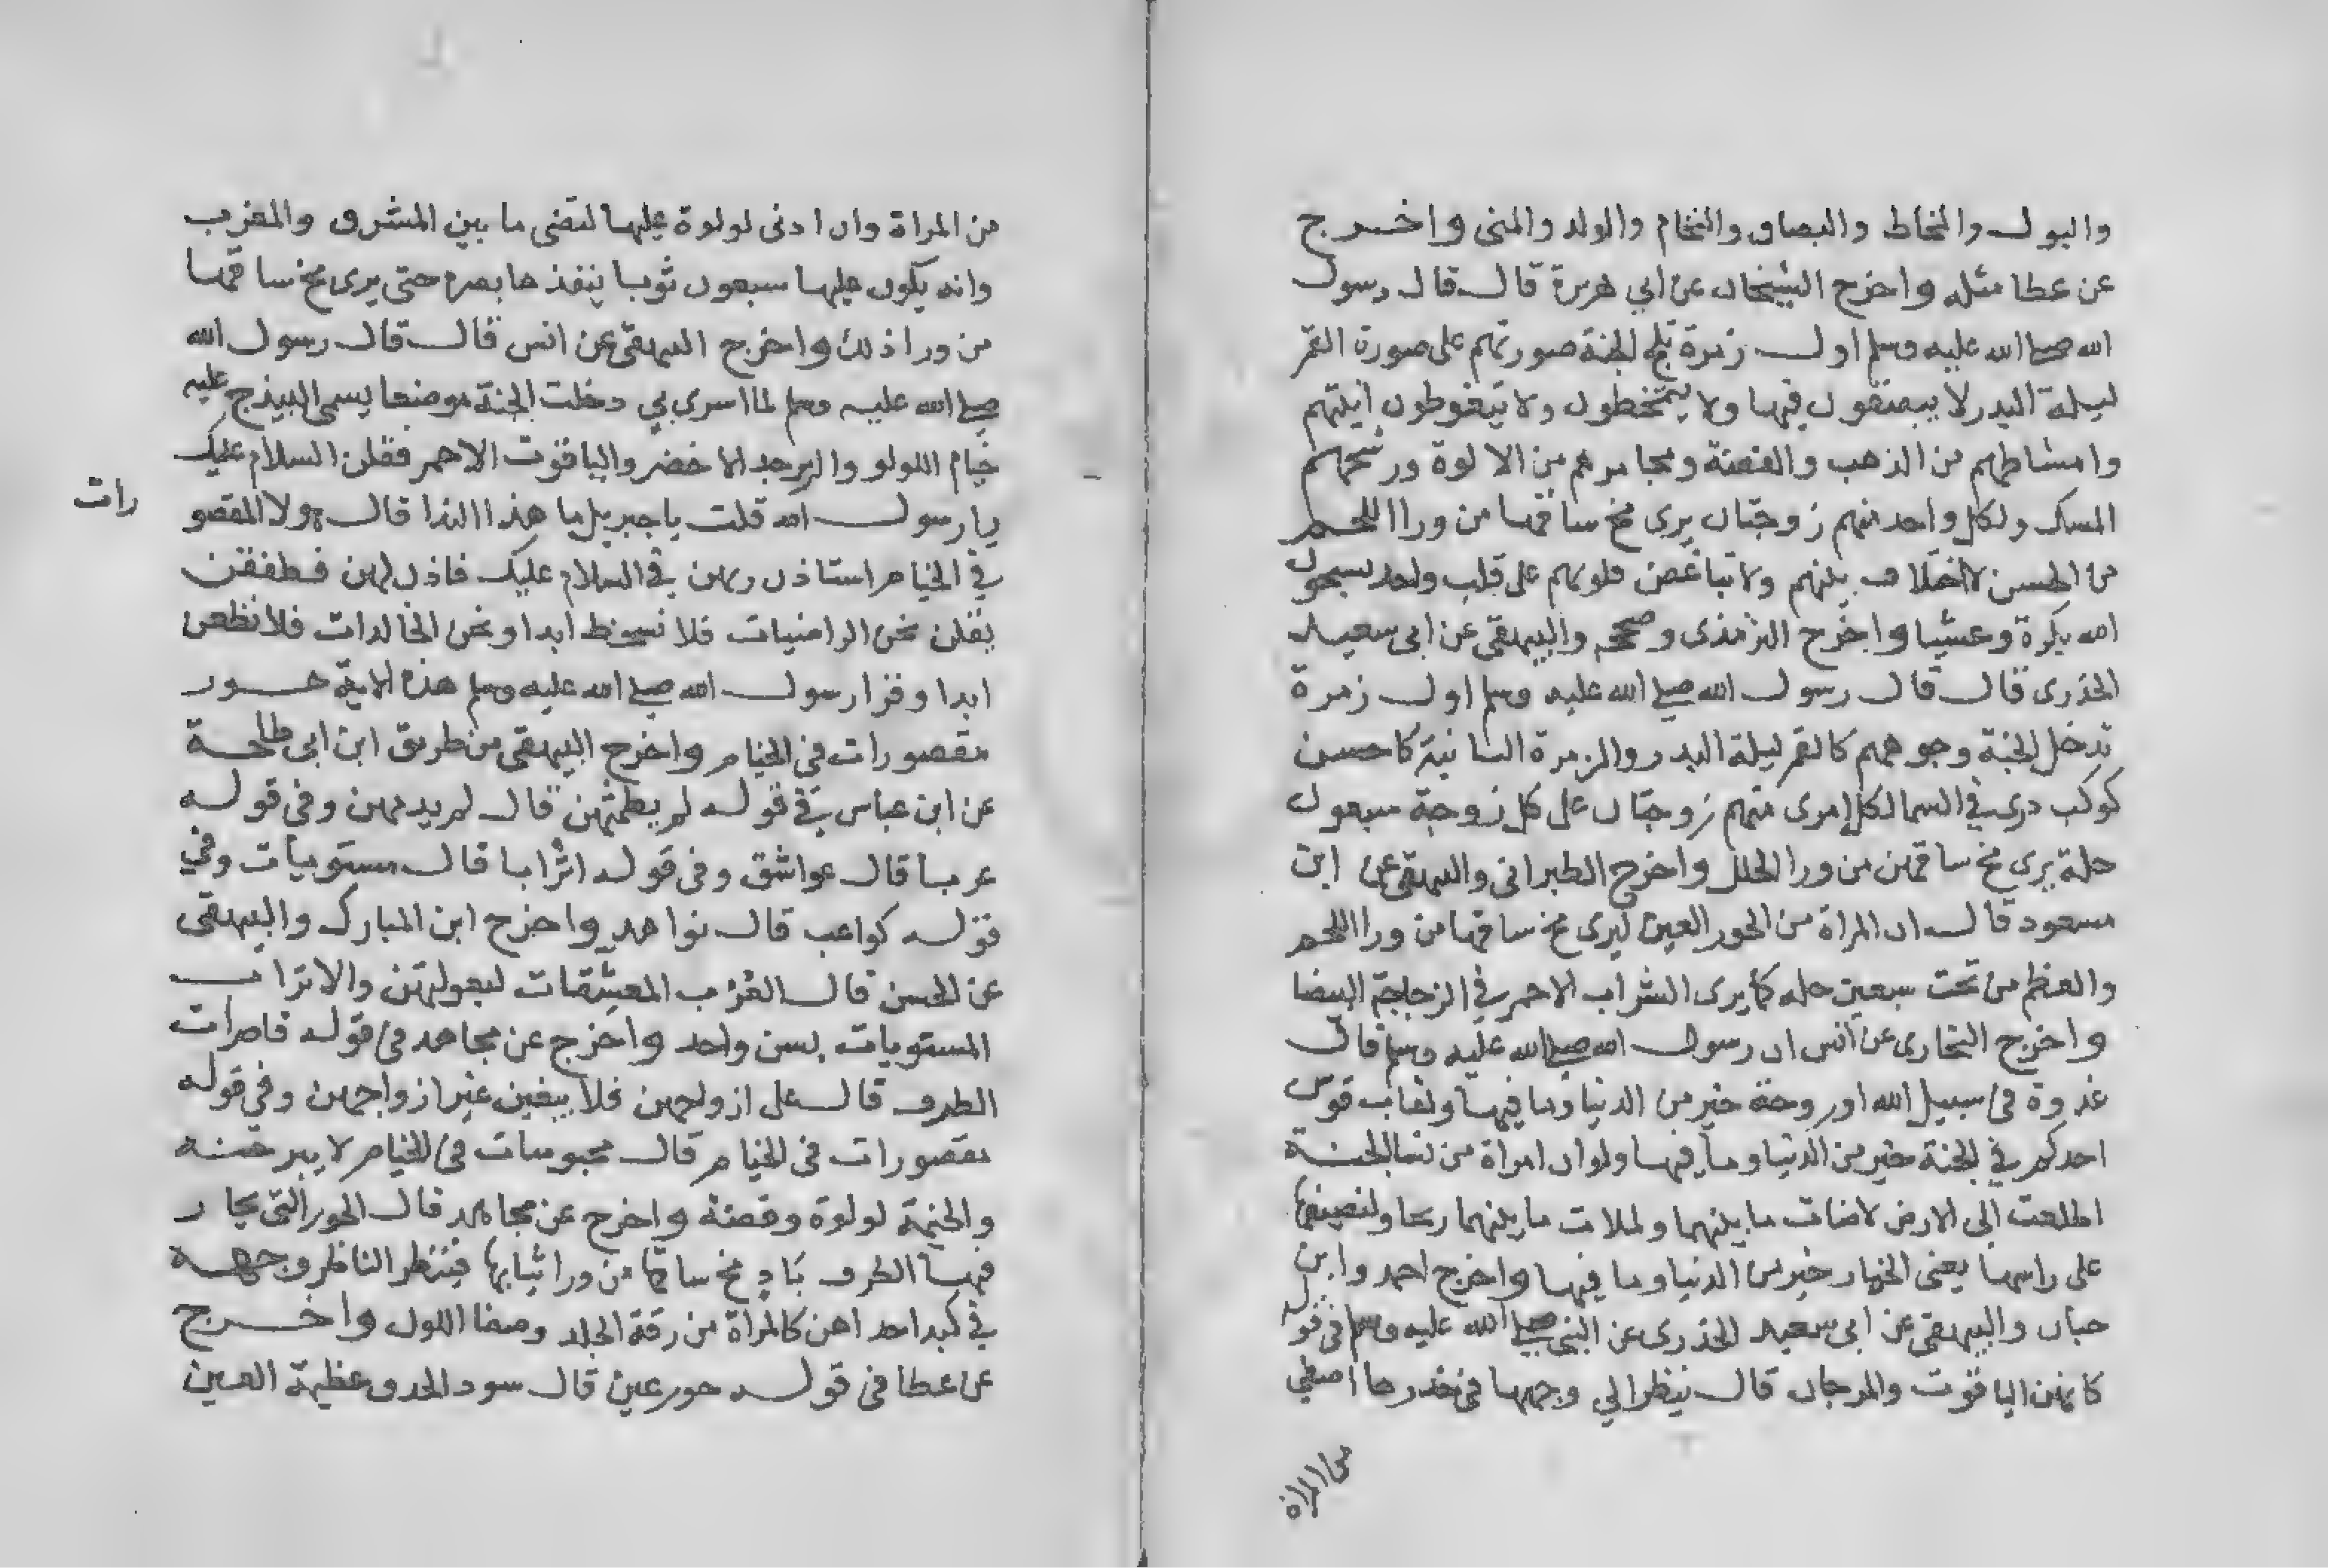 والبول والمخاط والبصاق والنخام والولد والمنى واخرج
عن عطا مثله واخرج الشيخان عن ابي هريرة قال قال رسول
الله صلى الله عليه وسلم اول زمرة تلج الجنة صورتهم على صورة القمر
ليلة البدر لا يبصقون فيها ولا يتمخطون ولا يتغوطون انيتهم
وامشاطهم من الذهب والفضة ومجامرهم من الالوة ورشحهم
المسك ولكل واحد منهم زوجتان يرى مخ ساقهما من ورا اللحم
من الحسن لا اختلاف بينهم ولا تباغض قلوبهم على قلب واحد يسبحون
الله بكرة وعشيا واخرج الترمذى وصححه والبيهقى عن ابى سعيد
الخذرى قال قال رسول الله صلى الله عليه وسلم اول زمرة
تدخل الجنة وجوههم كالقمر ليلة البدر والزمرة الثانية كاحسن
كوكب درى في السما لكل امرى منهم زوجتان على كل زوجة سبعون
حلة يرى مخ ساقهن من ورا الحلل واخرج الطبرانى والبيهقى عن ابن
مسعود قال ان المراة من الحور العين ليرى مخ ساقها من ورا اللحم
والعظم من تحت سبعين حله كما يرى الشراب الاحمر في الزجاجة البيضا
واخرج البخارى عن انس ان رسول الله صلى الله عليه وسلم قال
غدوة فى سبيل الله او روحة خير من الدنيا وما فيها ولقاب قوس
احدكم في الجنة خير من الدنيا وما فيها ولو ان امراة من نسا الجنة
اطلعت الى الارض لاضات ما بينهما ولملات ما بينهما ريحا ولنصيفها
على راسها يعنى الخمار خير من الدنيا وما فيها واخرج احمد وابن
حبان والبيهقى عن ابى سعيد الخذرى عن النبى صلى الله عليه وسلم فى قوله
كانهن الياقوت والمرجان قال ينظر الي وجهها فى خدرها اصفي
من المراة
من المراة وان ادنى لولوة عليها لتضى ما بين المشرق والمغرب
وانه يكون عليها سبعون ثوبا ينفذها بصره حتى يرى مخ ساقها
من ورا ذلك واخرج البيهقى عن انس قال قال رسول الله
صلى الله عليه وسلم لما اسرى بي دخلت الجنة موضعا يسمى البيذج عليه
خيام اللولو والزبرجد الاخضر والياقوت الاحمر فقلن السلام عليك
يا رسول الله قلت يا جبريل ما هذا الندا قال هولا المقصو
رات
في الخيام استاذن ربهن في السلام عليك فاذن لهن فطفقن
يقلن نحن الراضيات فلا نسخط ابدا ونحن الخالدات فلا نظعن
ابدا وقرا رسول الله صلى الله عليه وسلم هذه الاية حور
مقصورات فى الخيام واخرج البيهقى من طريق ابن ابى طلحة
عن ابن عباس في قوله لم يطمثهن قال لم يدمهن وفى قوله
عربا قال عواشق وفى قوله اترابا قال مستويات وفي
قوله كواعب قال نواهد واخرج ابن المبارك والبيهقى
عن الحسن قال العرب المعشقات لبعولتهن والاتراب
المستويات بسن واحد واخرج عن مجاهد فى قوله قاصرات
الطرف قال على ازواجهن فلا يبغين غير ازواجهن وفى قوله
مقصورات فى الخيام قال محبوسات فى الخيام لا يبرحنه
والخيمة لولوة وفضة واخرج عن مجاهد قال الحور التى يحار
فيها الطرف باد مخ ساقها من ورا ثيابها فينظر الناظر وجهه
في كبد احداهن كالمراة من رقة الجلد وصفا اللون واخرج
عن عطا فى قوله حور عين قال سود الحدق عظيمة العين